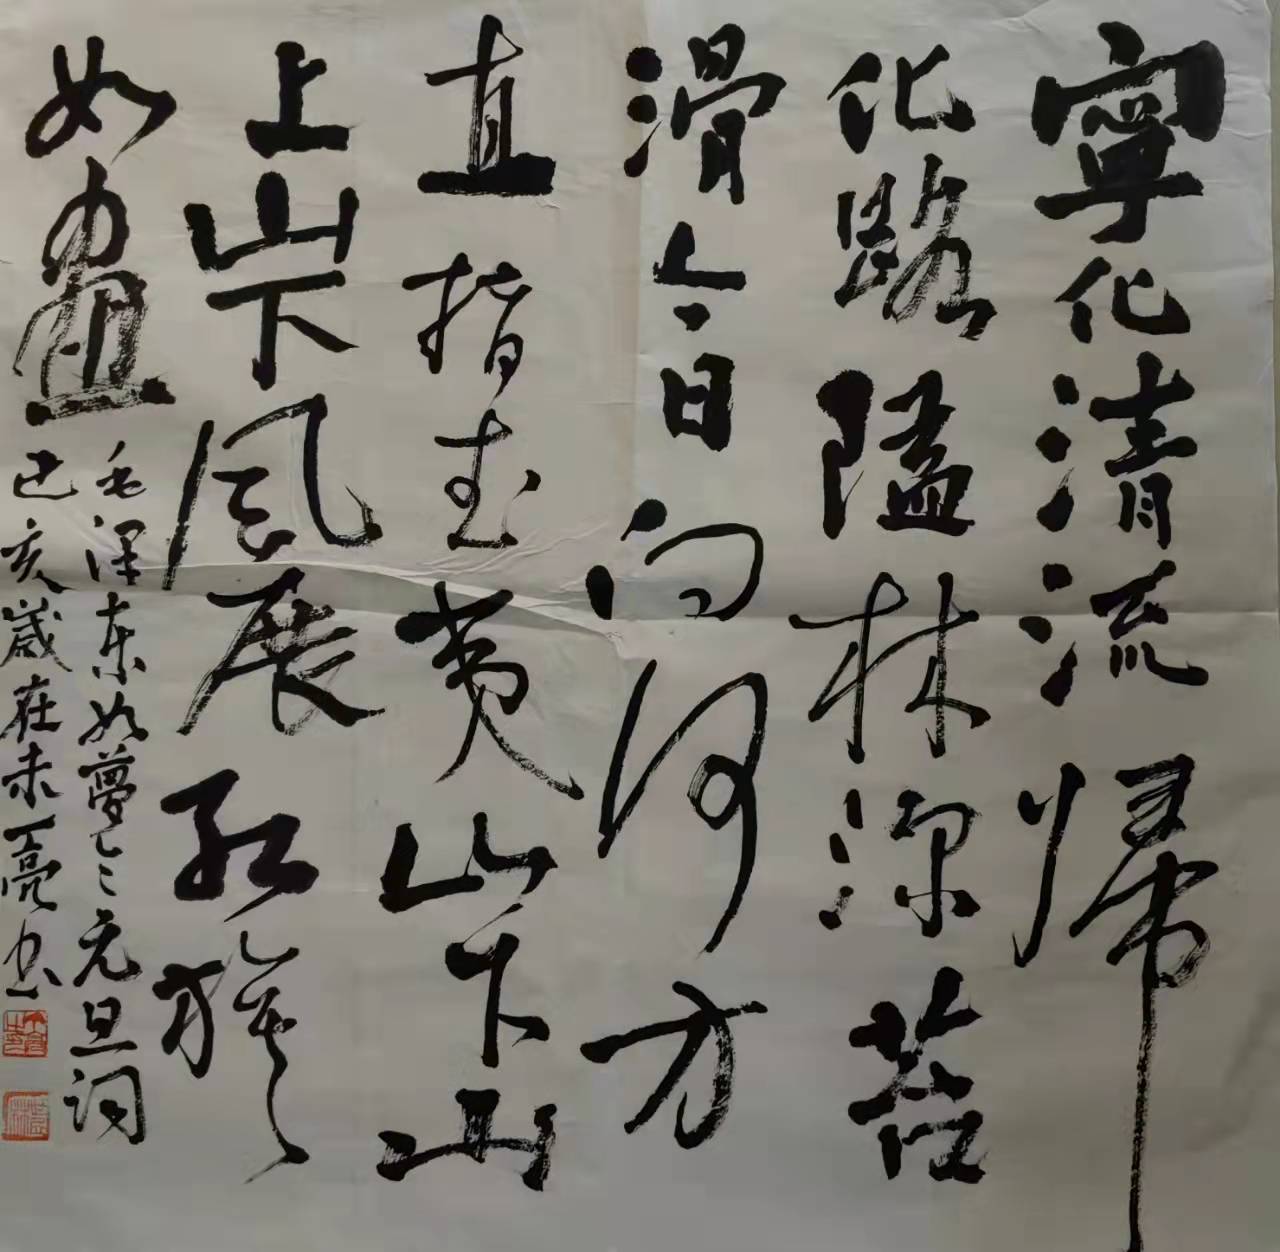 寧化清流歸
化路隘林深苔
滑今日向何方
直指武夷山下山
上山下風展紅旗
如畫
毛澤東如夢令元旦詞
己亥歲在未亮书